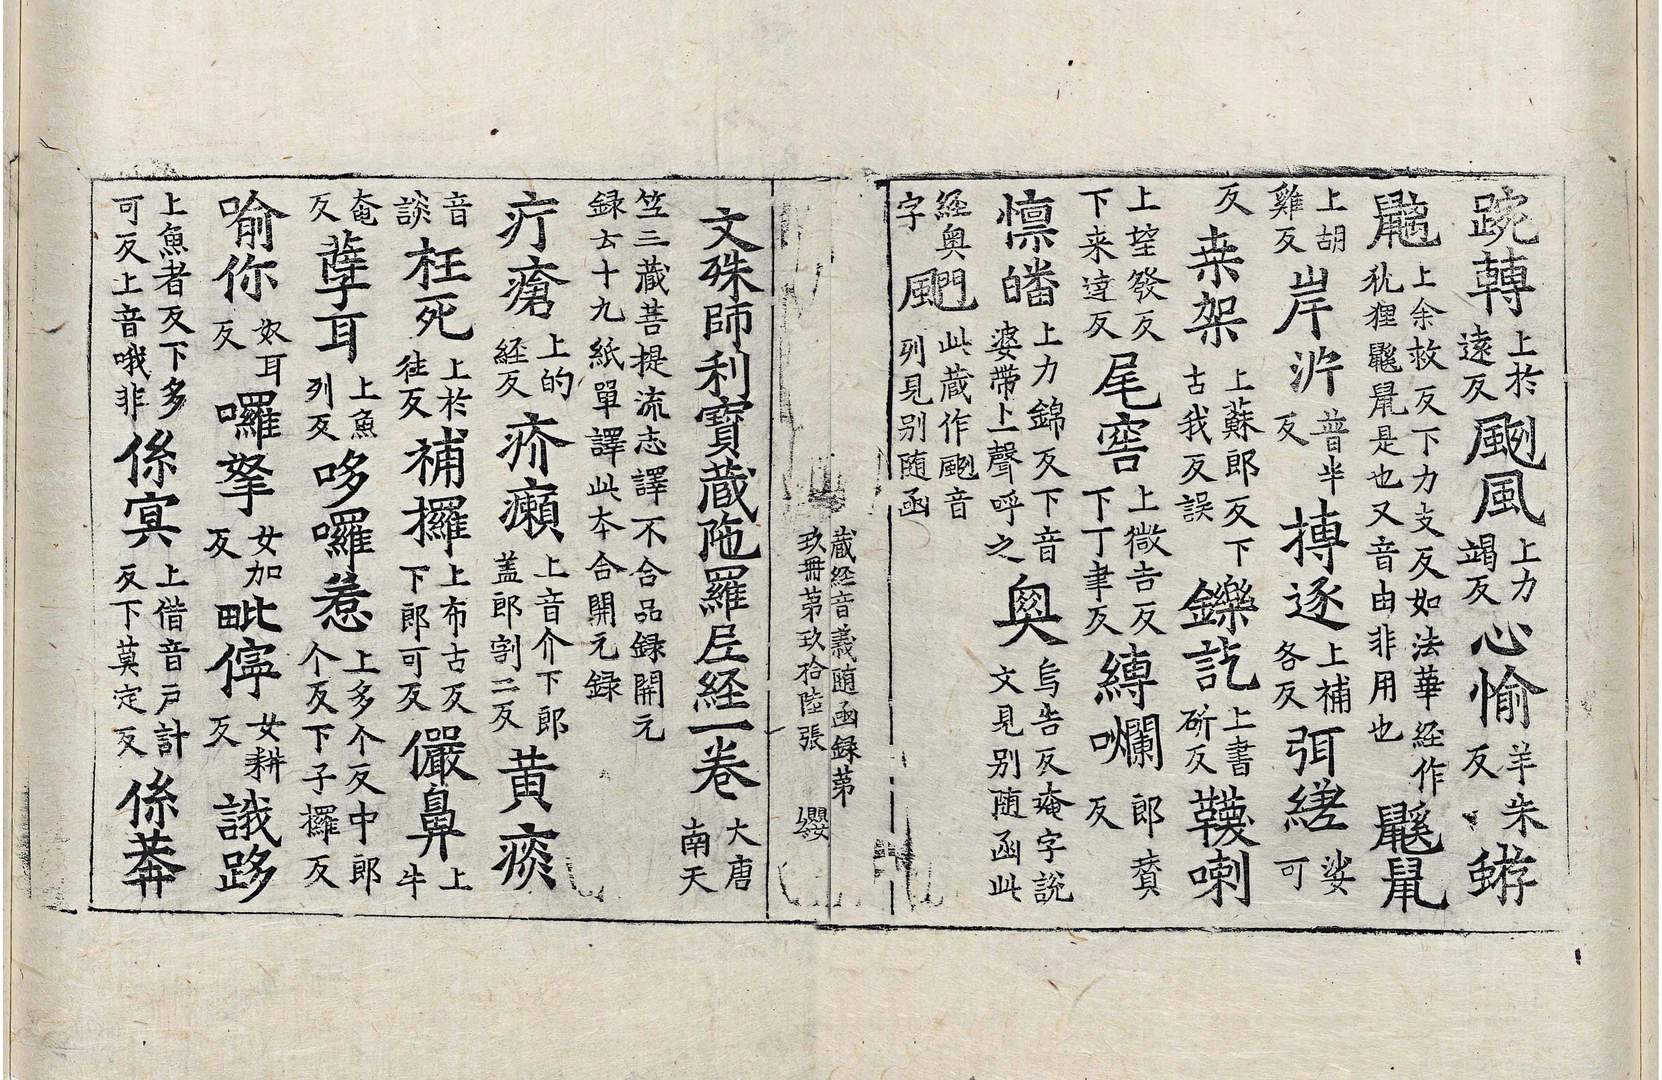 踠轉上於遠反颲風上力竭反心愉羊朱反蝣
上余救反下力支反如法華経作犹狸鼷鼠是也又音由非用也鼷鼠
上胡雞反岸泋普半反搏逐上補各反弭縒娑可
反桒架上蘇郎反下古我反誤鑠訖上書斫反韈喇
上𡋯發反下来達反尾窖上㣲告反下丁聿反縛𡃤郎賛反
懔皤上力錦反下音婆帶上聲呼之奥烏告反反癊字說文見别随函此
経奥門字颲此蔵作颲音列見别随函
蔵経音義随函録第玖冊第玖拾陸張 纓
文殊師利寳蔵陁羅𡰱経一卷大唐南天
竺三蔵菩提流志譯不合品録開元録云十九紙單譯此本合開元録
疔瘡上的経反疥癩上音介下郎盖郎割二反黄痰
音談枉死上於往反補攞上布古反下郎可反儼鼻上牛
奄反孽耳上魚列反哆囉惹上多个反中郎个反下子攞反
喻你奴耳反囉拏女加反毗儜女耕反誐跢
上魚者反下多可反上音哦非係寘上偕音戸計反下莫定反係莾